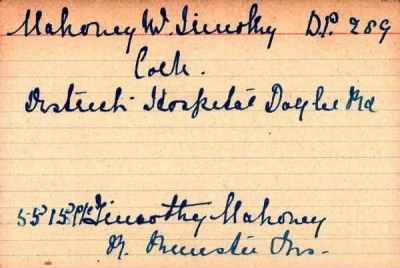 Mahoney Mr Timothy D.P. 289
Cork.
District Hospital Douglas Rd
5515 Pte Timothy Mahoney
R. Munster Fus.